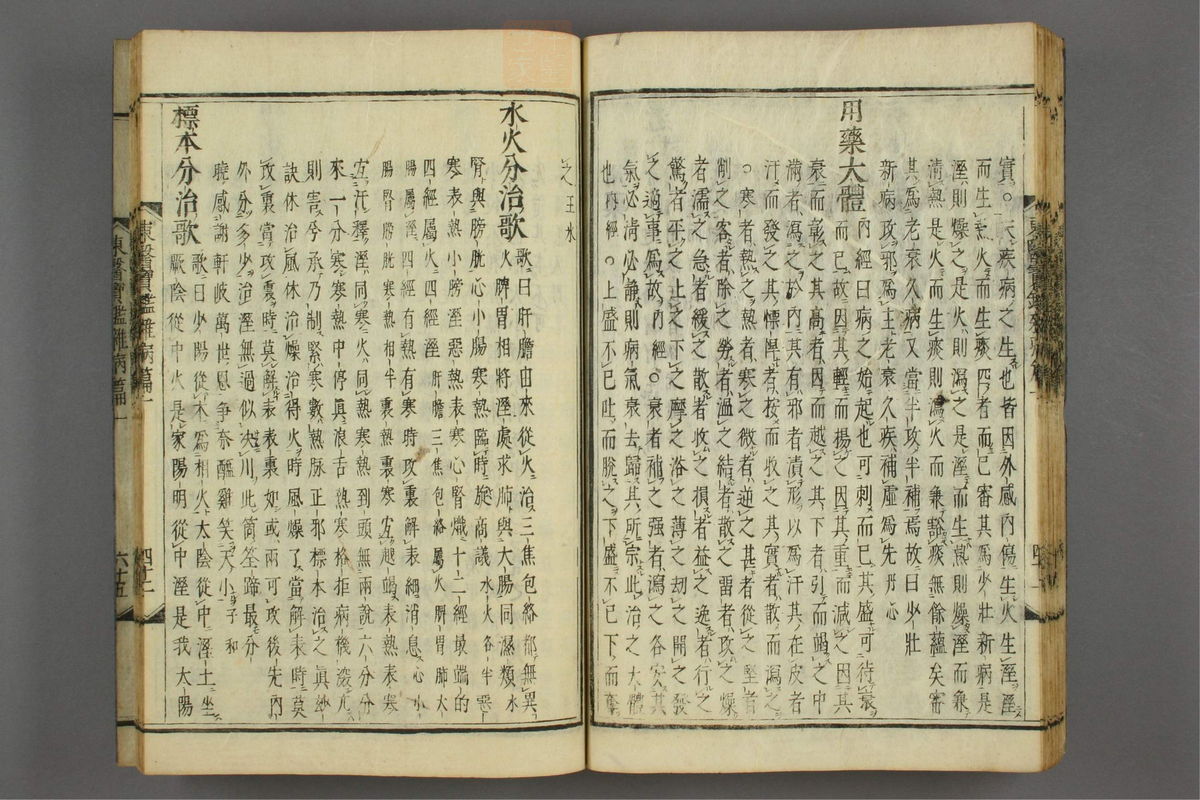 實。○夫疾病之生也皆因外感内傷生火生溼溼
而生熱火而生痰四者而已審其爲少壯新病是
溼則燥之是火則瀉之是溼而生熱則燥溼而兼
清熱是火而生痰則瀉火而兼豁痰無餘蘊矣審
其爲老衰久病又當半攻半補焉故曰少壯
新病攻邪爲主老衰久疾補虛爲先丹心
用藥大體
内經曰病之始起也可刺而已其盛可待衰
而已故因其輕而揚之因其重而減之因其
衰而彰之其高者因而越之其下者引而竭之中
滿者瀉之於内其有邪者漬形以爲汗其在皮者
汗而發之其慓悍者按而收之其實者散而瀉之
○寒者熱之熱者寒之微者逆之甚者從之堅者
削之客者除之勞者溫之結者散之留者攻之燥
者濡之急者緩之散者收之損者益之逸者行之
驚者平之上之下之摩之浴之薄之劫之開之發
之適事爲故内經○衰者補之强者瀉之各安其
氣必淸必靜則病氣衰去歸其所宗此治之大體
也内經○上盛不已吐而脫之下盛不已下而奪
之王氷
水火分治歌
歌曰肝膽由來從火治三焦包絡都無異
脾胃相將溼處求肺與大腸同濕類水
腎與膀胱心小腸寒熱臨時旋商議水火各半惡
寒表熱小膀溼惡熱表寒心腎熾十二經最端的
四經屬火四經溼肝膽三焦包絡屬火脾胃肺大
腸屬溼四經有熱有寒時攻裏解表細消息心小
腸腎膀胱寒熱相半裏熱裏寒宜越竭表熱表寒
宜汗釋溼同寒火同熱寒熱到頭無兩說六分分
來一分寒寒熱中停眞浪舌熱寒格拒病機深亢
則害兮承乃制緊寒數熱脉正邪標本治之眞妙
訣休治風休治燥治得火時風燥了當解表時莫
攻裏當攻裏時莫解表表裏如或兩可攻後先内
外分多少治溼無過似決川此箇筌蹄最分
曉感謝軒岐萬世恩爭奈醯雞笑天小子和
標本分治歌
歌曰少陽從本爲相火太陰從中溼土坐
厥陰從中火是家陽明從中溼是我太陽
東醫寶鑑雜病篇一
四十二
六十五